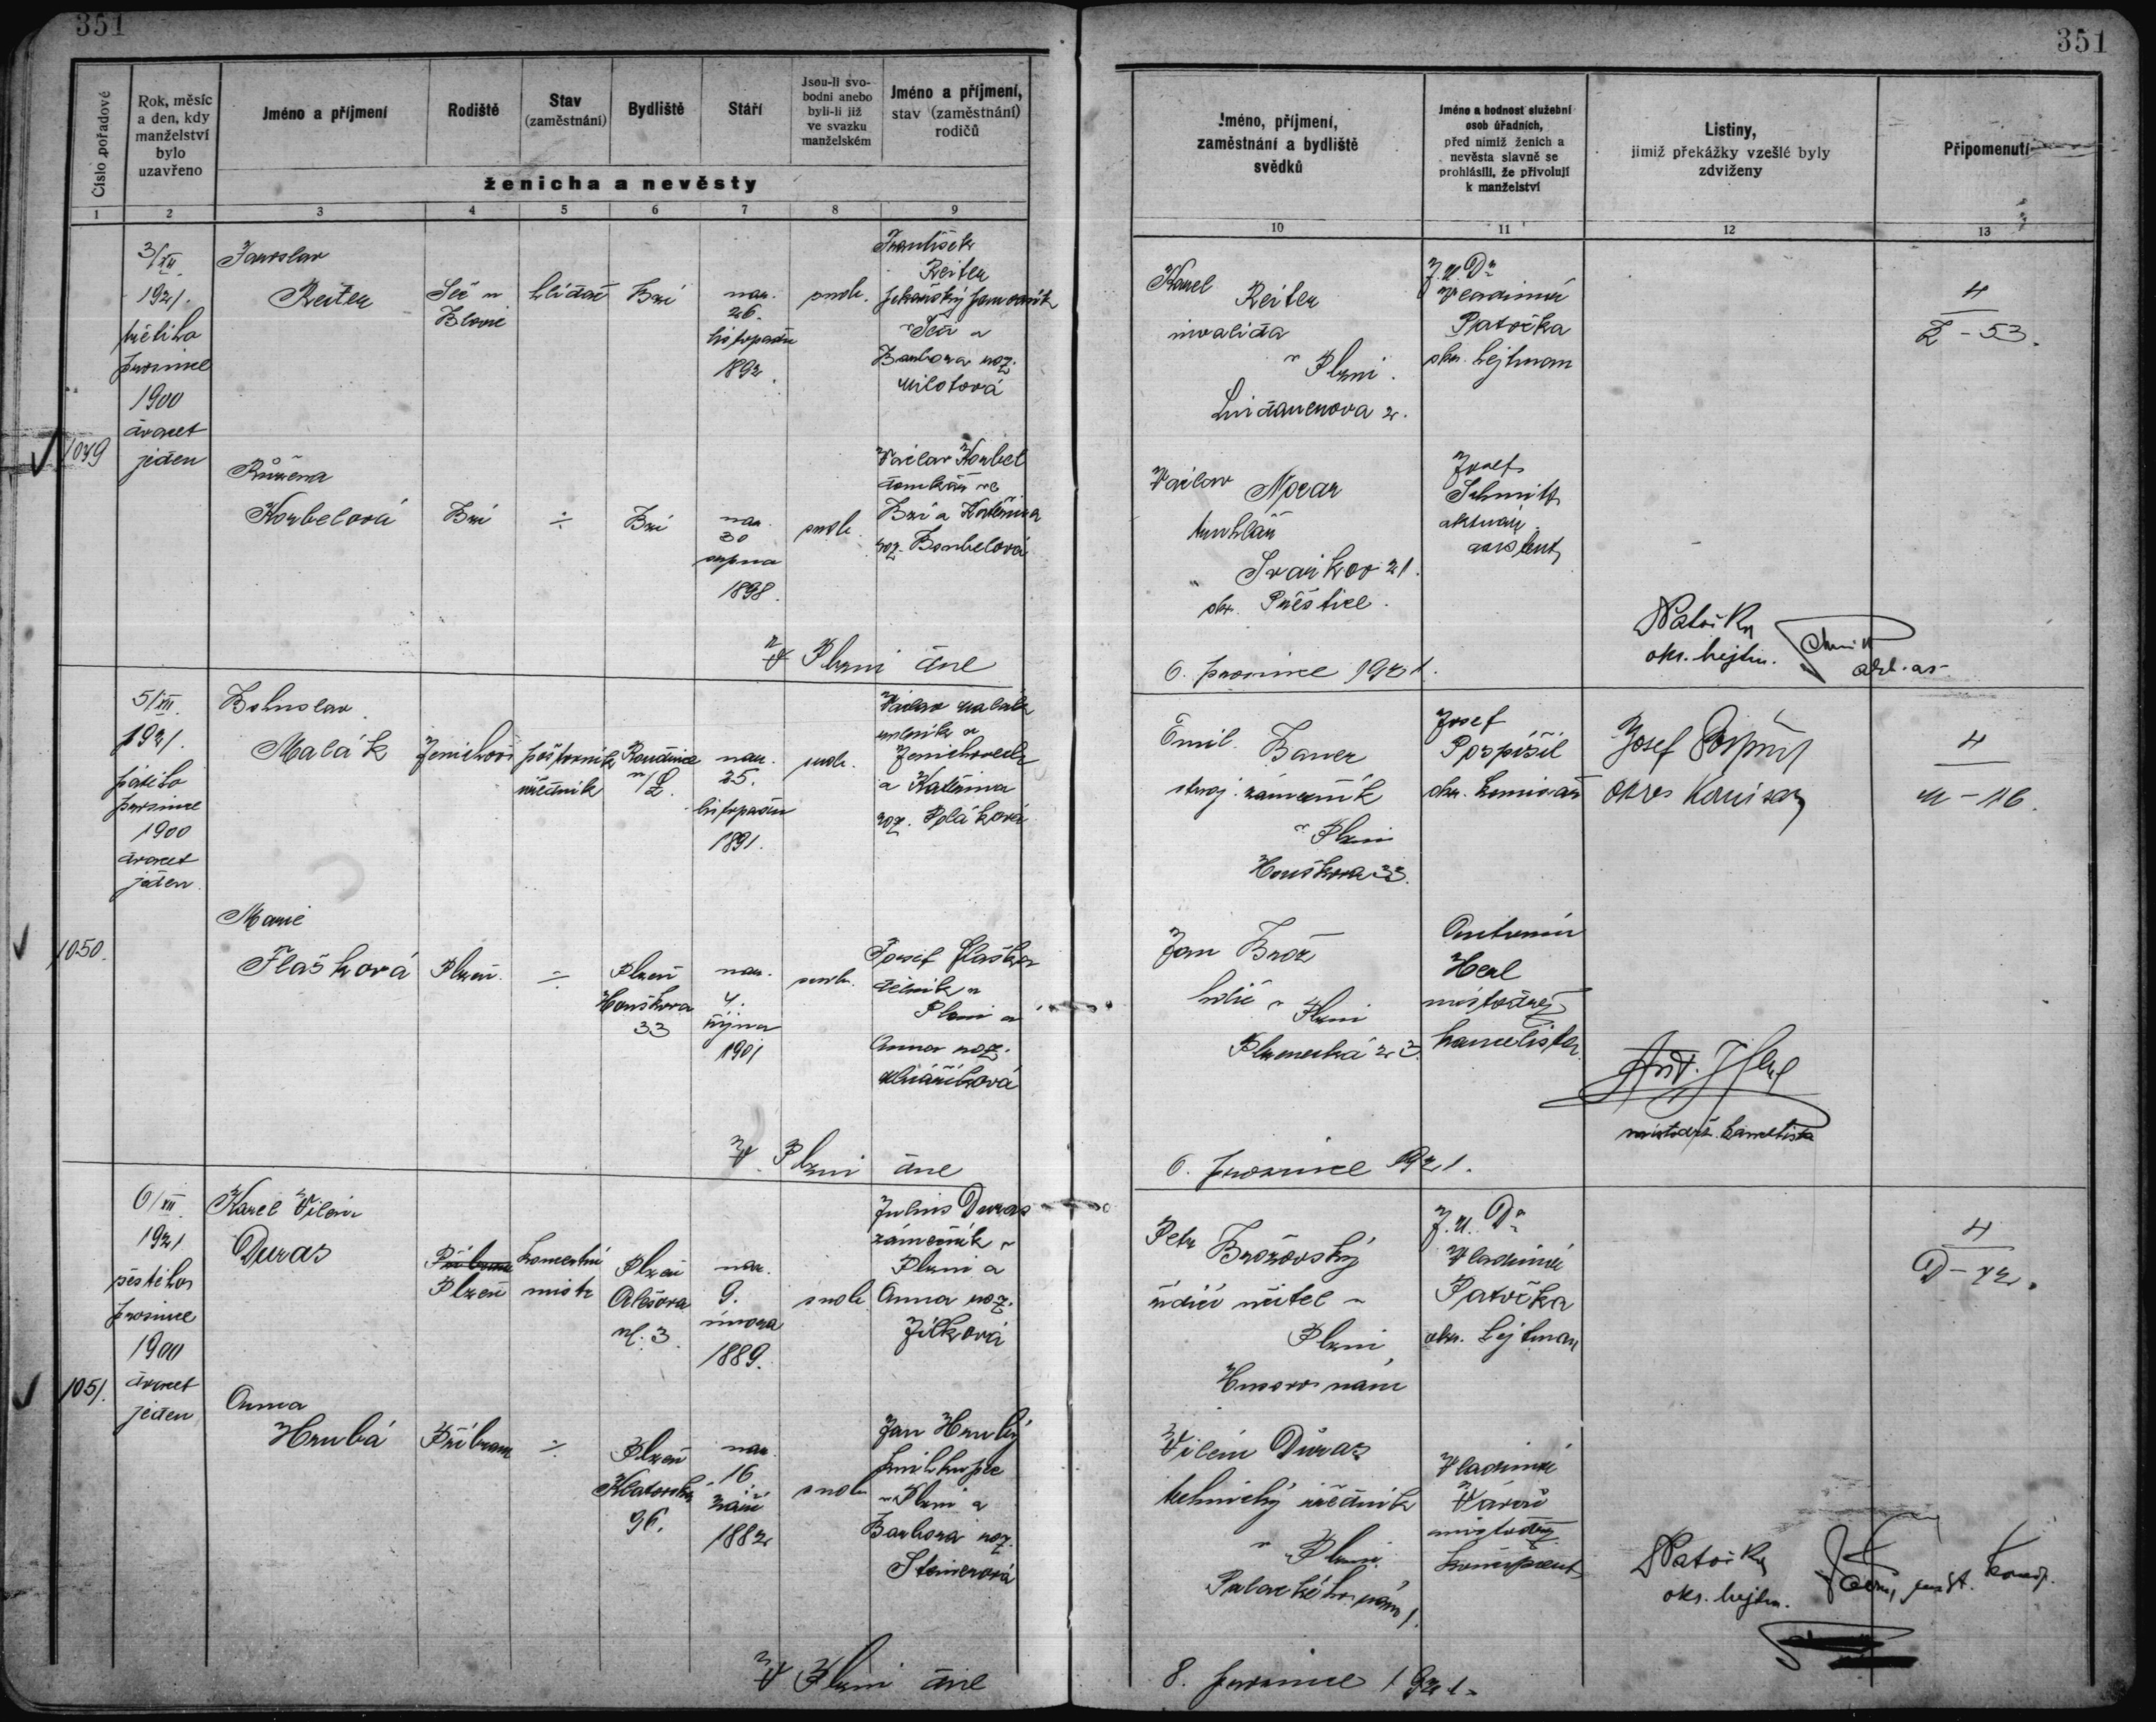 351
351
Číslo pořadové
Rok, měsíc
a den, kdy
manželství
bylo
uzavřeno
Jméno a příjmení
Rodiště
Stav
(zaměstnání)
Bydliště
Stáří
Jsou-li svo-
bodni anebo
byli-li již
ve svazku
manželském
Jméno a příjmení,
stav (zaměstnání)
rodičů
ženicha a nevěsty
Jméno, příjmení,
zaměstnání a bydliště
svědků
Jméno a hodnost služební
osob úřadních,
před nimiž ženich a
nevěsta slavně se
prohlásili, že přivolují
k manželství
Listiny,
jimiž překážky vzešlé byly
zdviženy
Připomenutí
1 2 3 4 5 6 7 8 9 10 11 12 13
1049
3/XII.
1921.
třetího
prosince
1900
dvacet
jeden
Jaroslav
Reiter
hlídač
nar.
26.
listopadu
1892.
svob.
František
Reiter
Barbora roz.
Karel
Reiter
invalida
v Plzni.
J.U.Dr
Vladimír
Patočka
okr. hejtman
4
Ž - 53.
Růžena
Korbelová
÷
nar.
30
srpna
1898.
svob.
Václav Korbel
a Kateřina
Václav
truhlář
okr. Přeštice.
Josef
Schmitt
Patočka
okr. hejtm.
V Plzni dne
6. prosince 1921.
1050.
5/XII.
1921.
pátého
prosince
1900
dvacet
jeden
Bohuslav
Malák
poštovní
úředník
Roudnice
n/L.
nar.
25.
listopadu
1891.
svob.
a Kateřina
Emil
Bauer
stroj. zámečník
v Plzni
Houškova 33.
Josef
Pospíšil
okr. komisař
Josef Pospíšil
okres komisař
4
M - 116.
Marie
Flašková
Plzeň.
÷
Plzeň
Houškova
33
nar.
4.
října
1901
svob.
Josef Flaška
dělník v
Plzni a
Anna roz.
Jan Brož
holič v Plzni
Antonín
Herl
místodrž.
kancelista
Ant. Herl
místodrž. kancelista
V Plzni dne
6. prosince 1921.
1051.
6/XII.
1921
šestého
prosince
1900
dvacet
jeden
Karel Vilém
Duras
Příbram
Plzeň
mistr
Plzeň
Alešova
ul. 3.
nar.
9.
února
1889.
svob
Julius Duras
zámečník v
Plzni a
Anna roz.
Jílková
Petr
Brožovský
řídící učitel v
Plzni
Husovo nám
J.U.Dr
Vladimír
Patočka
okr. hejtman
4
D - 72.
Anna
Hrubá
Příbram
÷
Plzeň
Klatovská
96.
nar.
16
září
1882
svob
Jan Hrubý
v Plzni a
Barbora roz.
Steinerová
Vilém Duras
technický úředník
v Plzni
Palackého nám 1.
Vladimír
místodrž.
koncipient
Patočka
okr. hejtm.
V Plzni dne
8. prosince 1921.